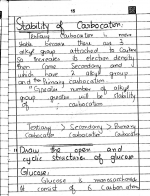 18
Stability of Carbocation.
Tertiary carbocation is more
stable because there are 3
alkyl group attached to Carbon
So increases its electron density
than come Secondary and
which have 2 alkyl group
and the Primary carbocation
"Greater number of alkyl
group greater will be stability
of carbocation
Tertiary > Secondary > Primary
Carbocation Carbocation Carbocation
Draw the open and
cyclic structure of glucose
Glucose:
Glucose is monosaccharide
it consist of 6 Carbon atom